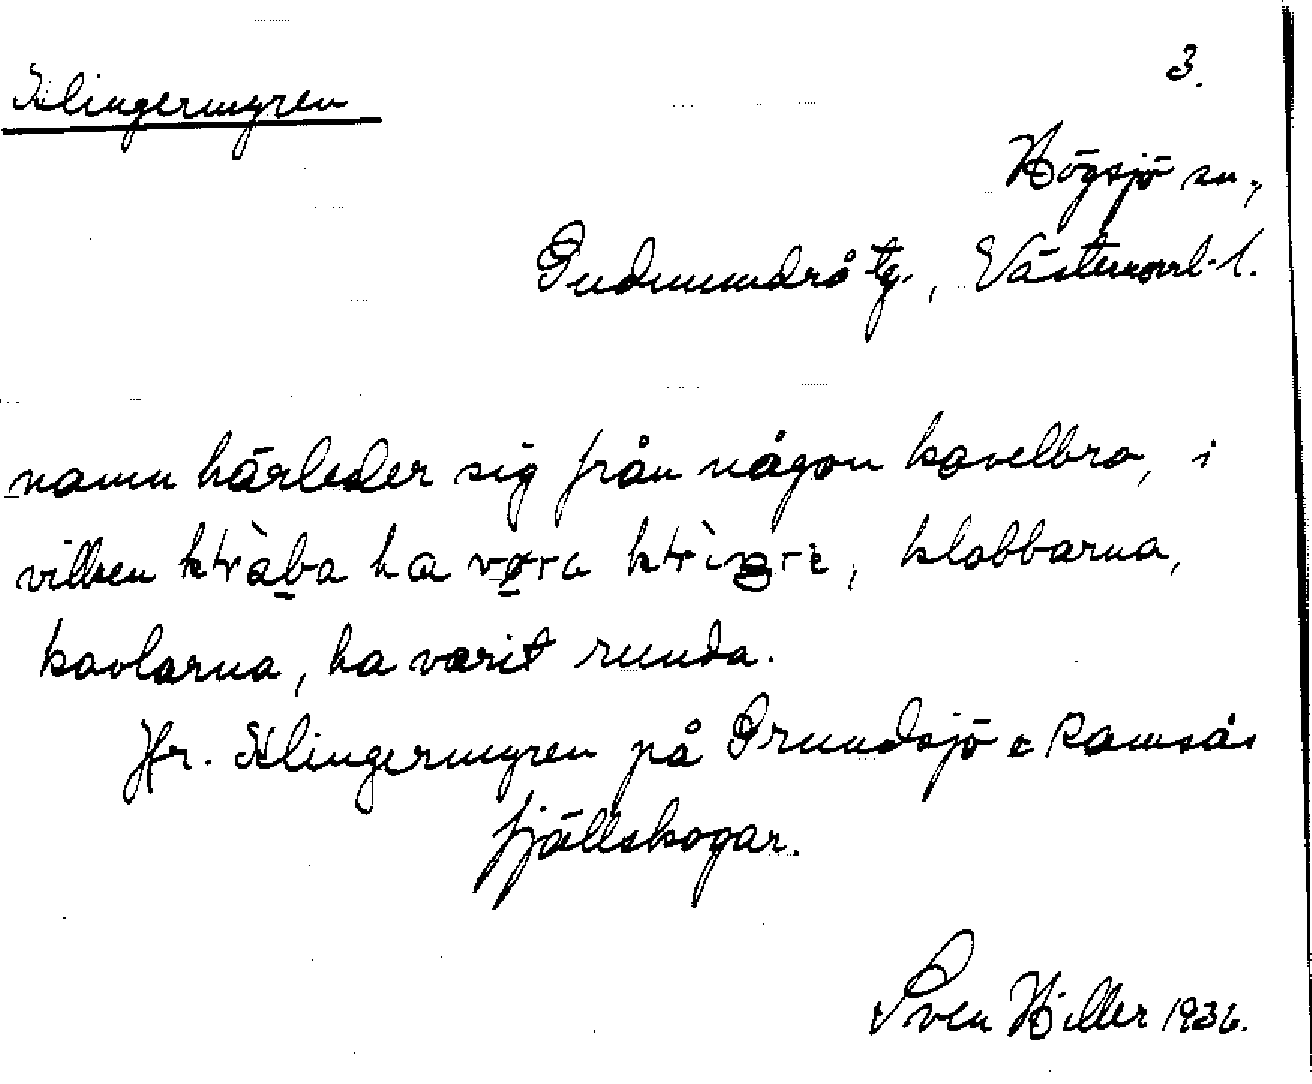 3.
Klingermyren
Högsjö sn.,
Gudmundrå tg., Västernorrl. l.
namn härleder sig från någon kavelbro, i
vilken ha klabbarna,
kavlarna, ha varit runda.
Jfr. Klingermyren på Grundsjö o Ramsås
fjällskogar.
Sven Hiller 1936.